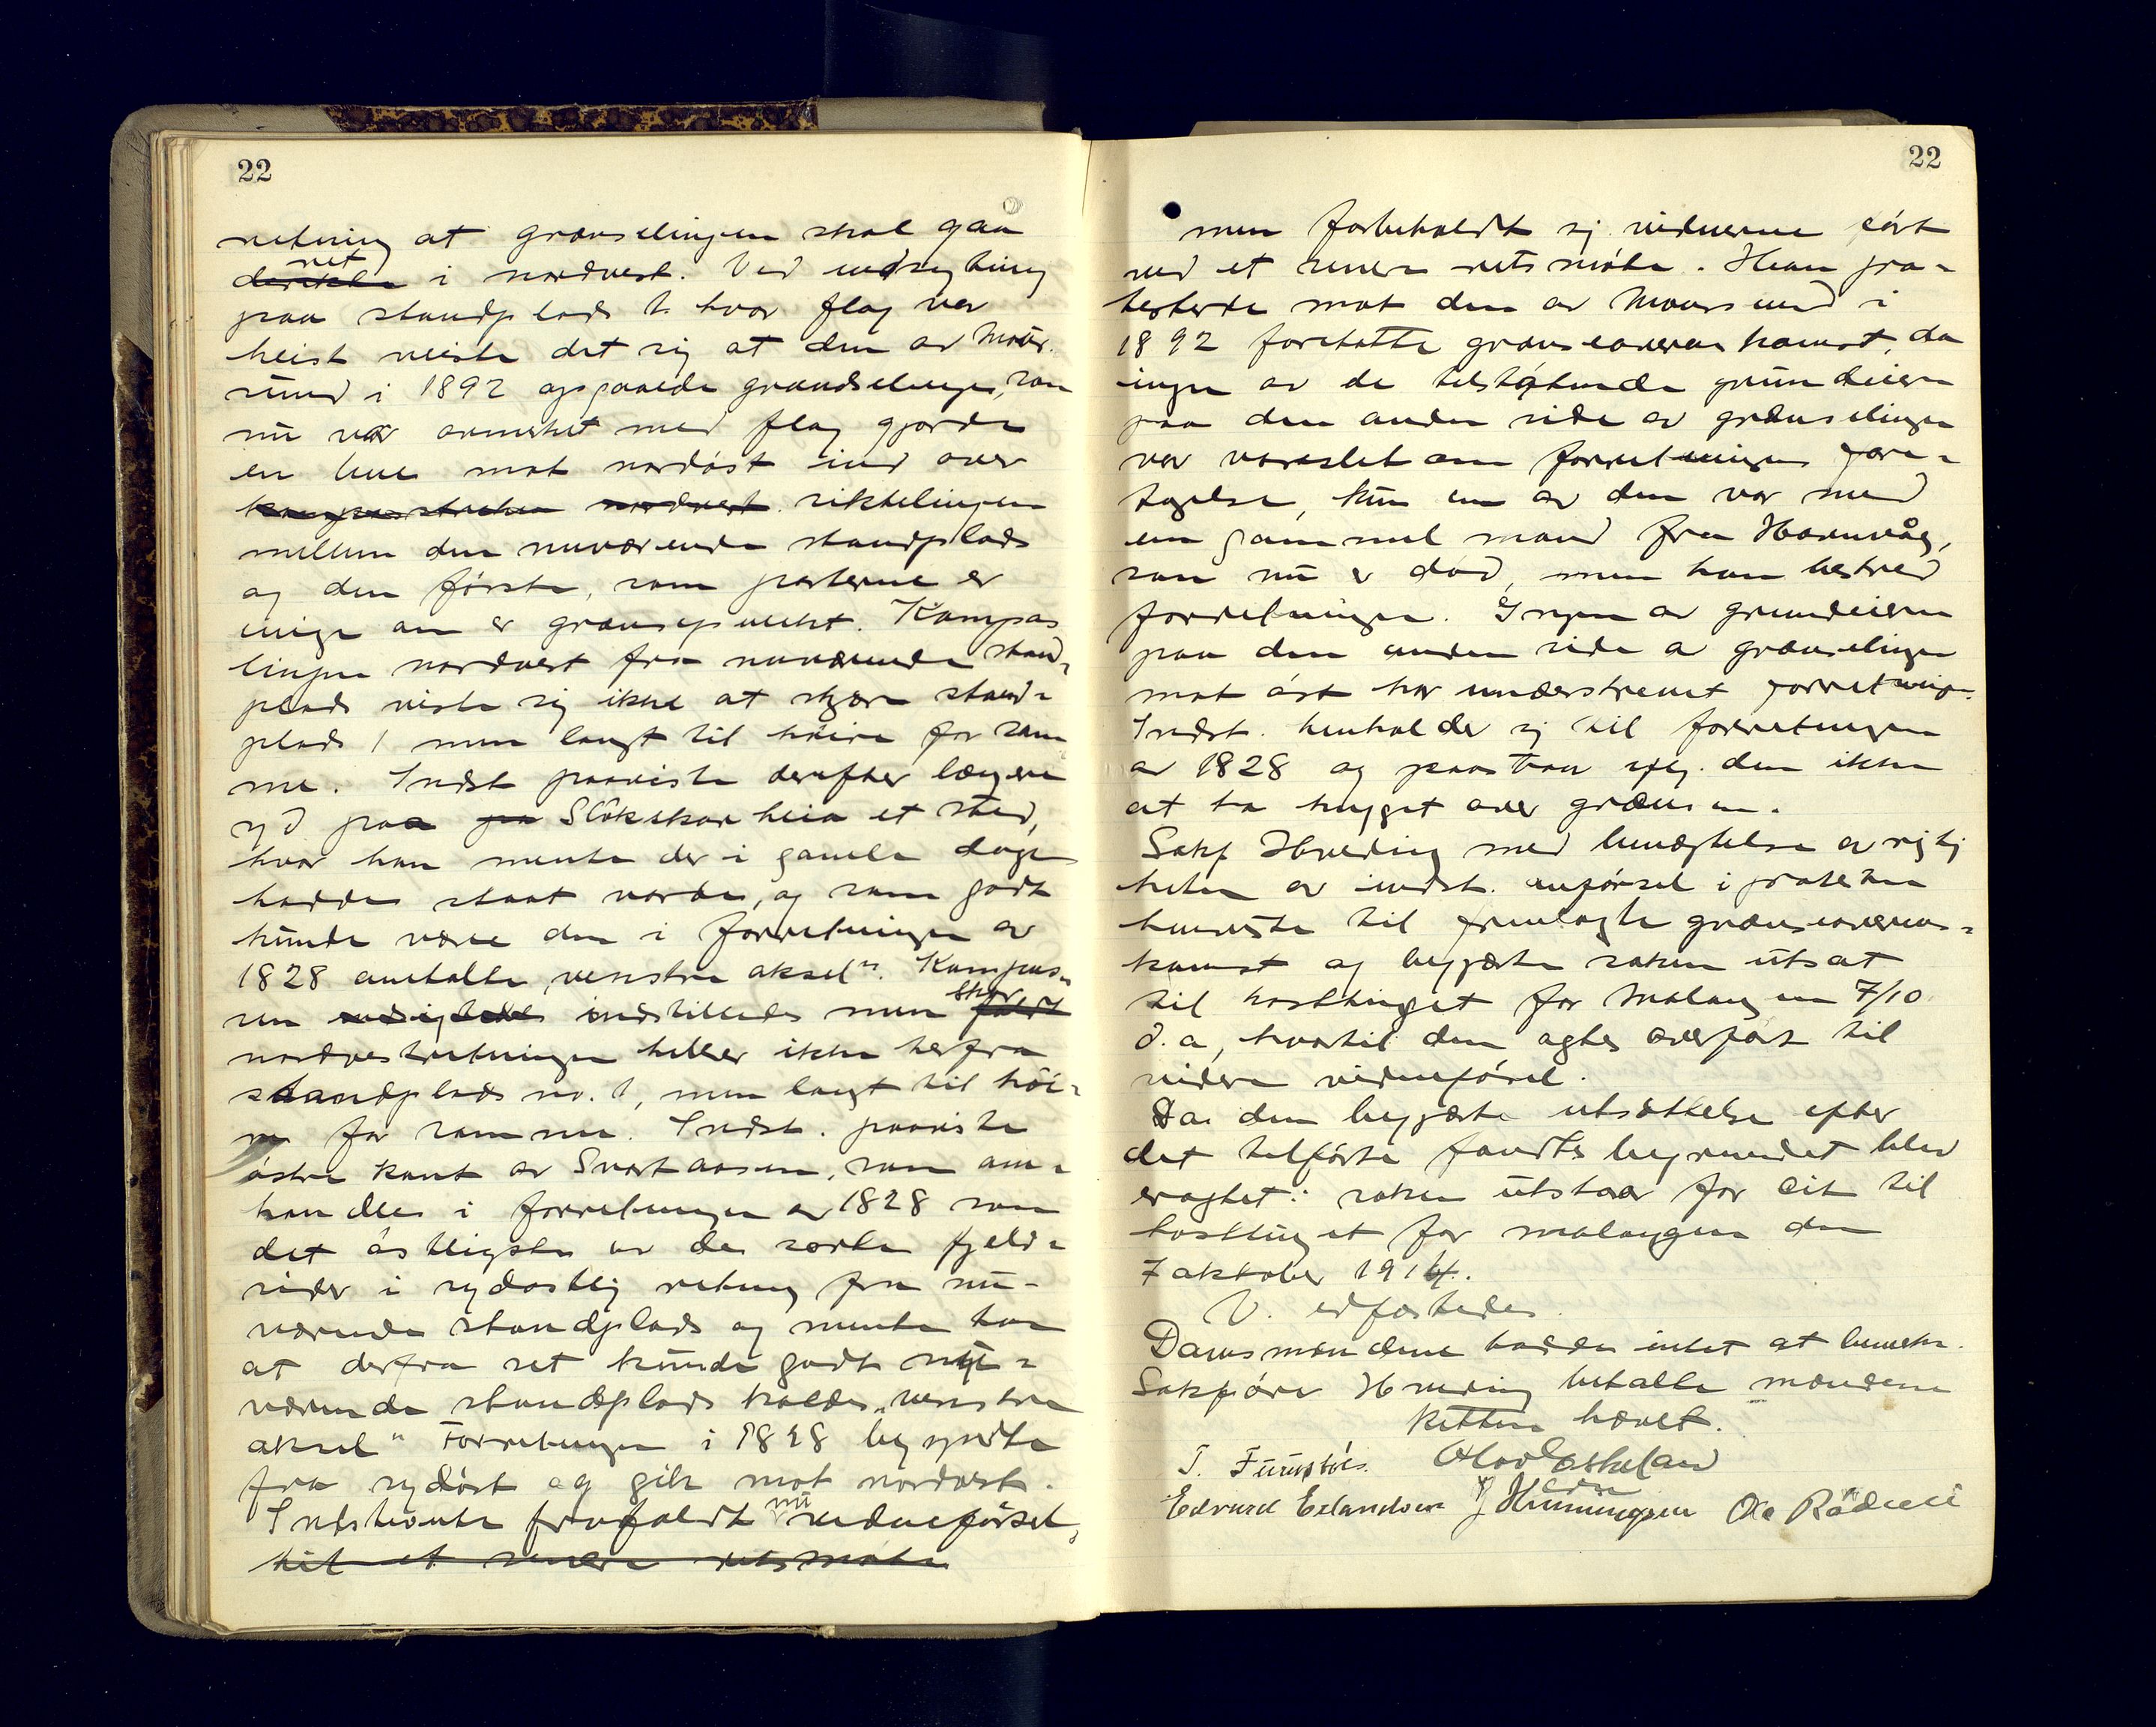 22
retning at grænselingen skal gaa
ret
derikke i nordvest. Ved indsigtning
paa standplads 1. hvor flag var
heist viiste det sig at den av Mour
sund i 1892 opgaaede grændselinge, som
nu var avmerket med flag gjorde
en bue mot nordøst ind over
kompasstreken nordvest. siktelingen
mellem den nuværende standplads
og den første, som parterne er
enige om er grænsepunkt. Kompas
lingen nordvest fra nuværende stand-
plads viste sig ikke at skjære stand-
plads 1 men langt til høire for sam
me. Indst paaviste derefter længere
syd paa paa Slökskarheia et sted,
hvor han mente der i gamle dage
hadde staat varde, og som godt
kunde være den i forretningen av
1828 omtalte „venstre aksel“. Kompas-
sen indstilledes men skar faldt
nordvestretningen heller ikke herfra
standplads no. 1, men langt til høi-
re for samme. Indst. paaviste
østre kant av Svartaasen, som om-
handles i forretningen av 1828 som
det østligste av de sorte fjeld-
sider i sydøstlig retning fra nu-
værende standplads og mente han
at derfra set kunde godt nu-
værende standplads kaldes „venstre
aksel“ Forretningen i 1828 begyndte
fra sydøst og gik mot nordvest.
nu
Indstevnte frafaldt vidneførsel,
til et senere retsmøte
22
men forbeholdt sig vidnerne ført
ved et senere retsmøte. Han pro-
testerte mot den av Moursund i
1892 foretatte grænseoverenskomst, da
ingen av de tilstøtende grundeiere
paa den anden side av grænselingen
var varslet om forretningens fore-
tagelse, kun en av dem var med
en gammel mand fra Havnvåg,
som nu er død, men han bestred
forretningen. Ingen av grundeierne
paa den anden side av grænselingen
mot øst har underskrevet forretningen.
Indst. henholder sig til forretningen
av 1828 og paastaar sig den ikke
at ha hugget over grænsen.
Sakf Hveding med benægtelse av rigtig
heten av indst. anførsel i protokollen
henviste til fremlagte grænseoverens-
komst og begjærte saken utsat
til høsttinget for Malangen 7/10
d. a, hvortil den agtes overført til
videre vidneførsel.
Da den begjærte utsættelse efter
det tilførte fandtes begrundet blev
eragtet: saken utstaar for sit til
høsttinget for malangen den
7 oktober 1914.
V. edfæstedes.
Domsmændene hadde intet at bemerke.
Sakfører Hveding betalte mændene
Retten hævet.
T. Olav Eskeland
Edvard Erlandsen J Henningsen Ole